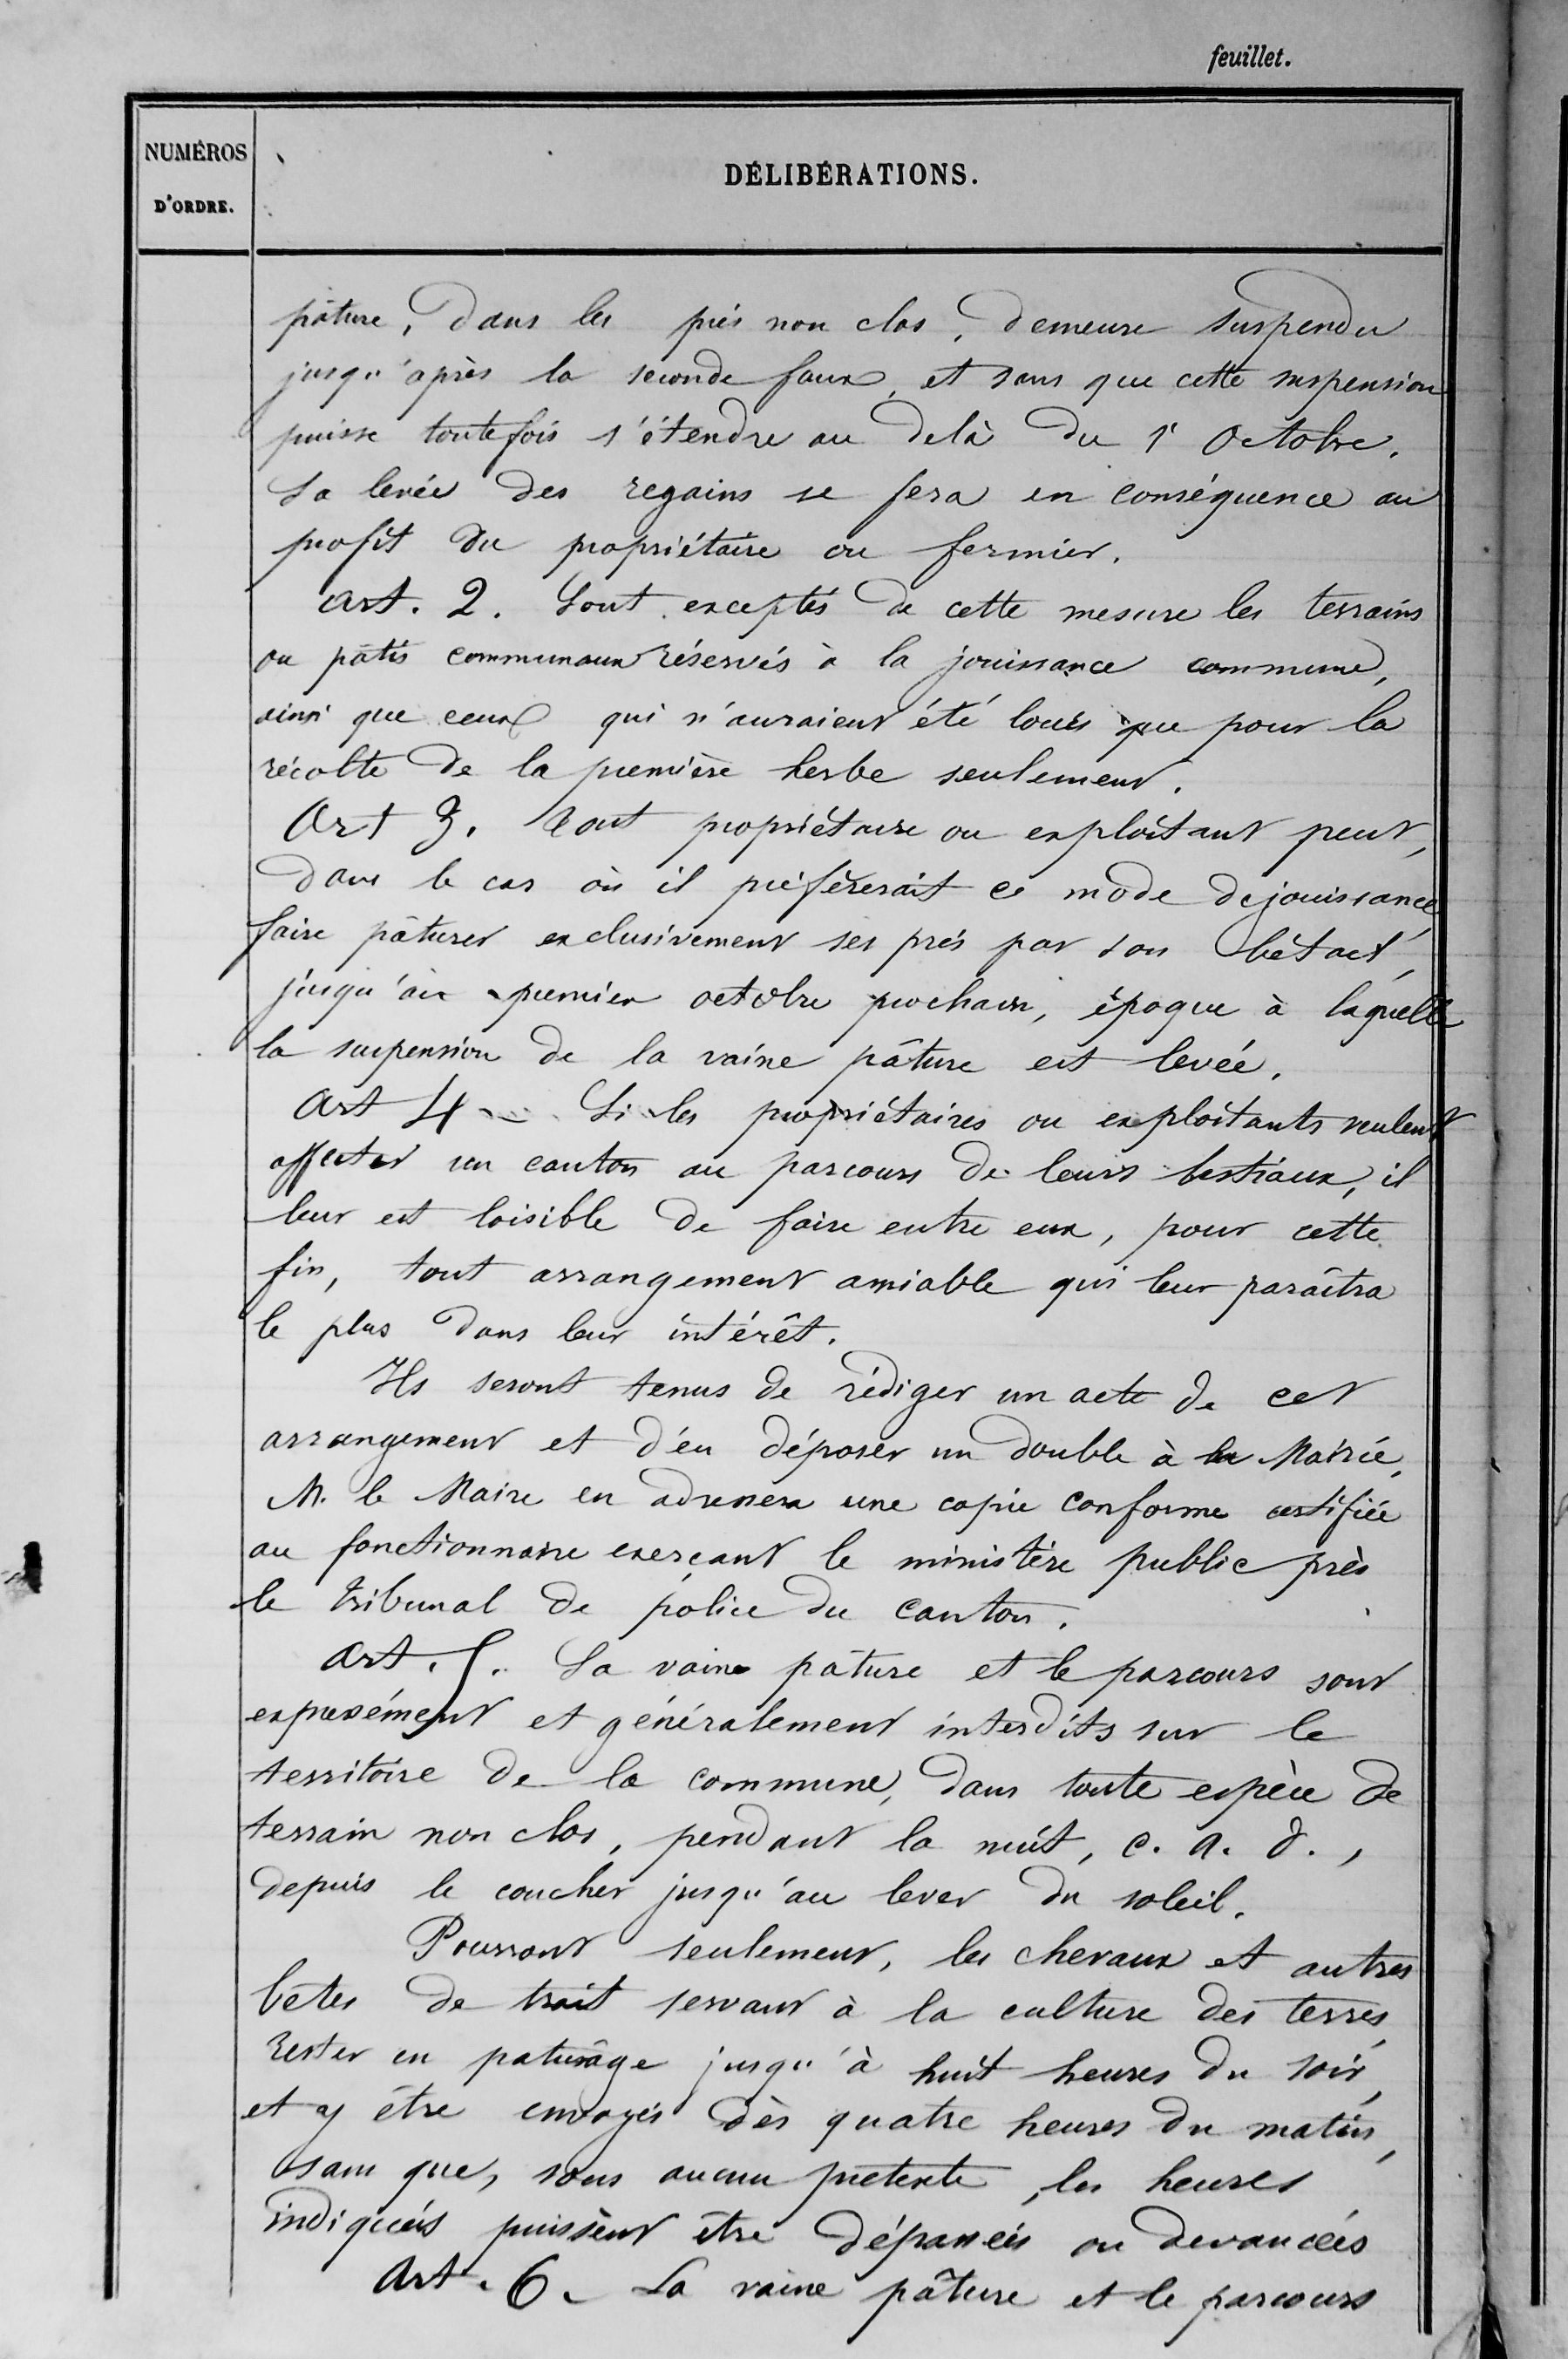 feuillet.
NUMÉROS
D'ORDRE.
DÉLIBÉRATIONS.
pâture, dans les prés non clos, demeure suspendu
jusqu'après la seconde faux, et sans que cette suspension
puisse toutefois s'étendre au delà du 1er Octobre.
La levée des regains se fera en conséquence au
profit du propriétaire ou fermier.
Art. 2. Sont exceptés de cette mesure les terrains
ou pâtis communaux réservés à la jouissance commune,
ainsi que ceux qui n'auraient été loués que pour la
récolte de la première herbe seulement.
Art 3. Tout propriétaire ou exploitant peut,
dans le cas où il préférerait ce mode de jouissance,
faire pâturer exclusivement ses prés par son bétail,
jusqu'au premier octobre prochain, époque à laquelle
la suspension de la vaine pâture est levée.
Art 4 - Si les propriétaires ou exploitants veulent
affecter un canton au parcours de leurs bestiaux, il
leur est loisible de faire entre eux, pour cette
fin, tout arrangement amiable qui leur paraîtra
le plus dans leur intérêt.
Ils seront tenus de rédiger un acte de cet
arrangement et d'en déposer un double à la Mairie,
M. le Maire en adressera une copie conforme certifiée
au fonctionnaire exerçant le ministère public près
le tribunal de police du canton.
Art. 5. La vaine pâture et le parcours sont
expressément et généralement interdits sur le
territoire de la commune, dans toute espèce de
terrain non clos, pendant la nuit, c. a. d.,
depuis le coucher jusqu'au lever du soleil.
Pourront seulement, les chevaux et autres
bêtes de trait servant à la culture des terres,
rester en paturage jusqu'à huit heures du soir,
et y être envoyés dès quatre heures du matin,
sans que, sous aucun prétexte, les heures
indiquées puissent être dépassées ou devancées
Art. 6. La vaine pâture et le parcours